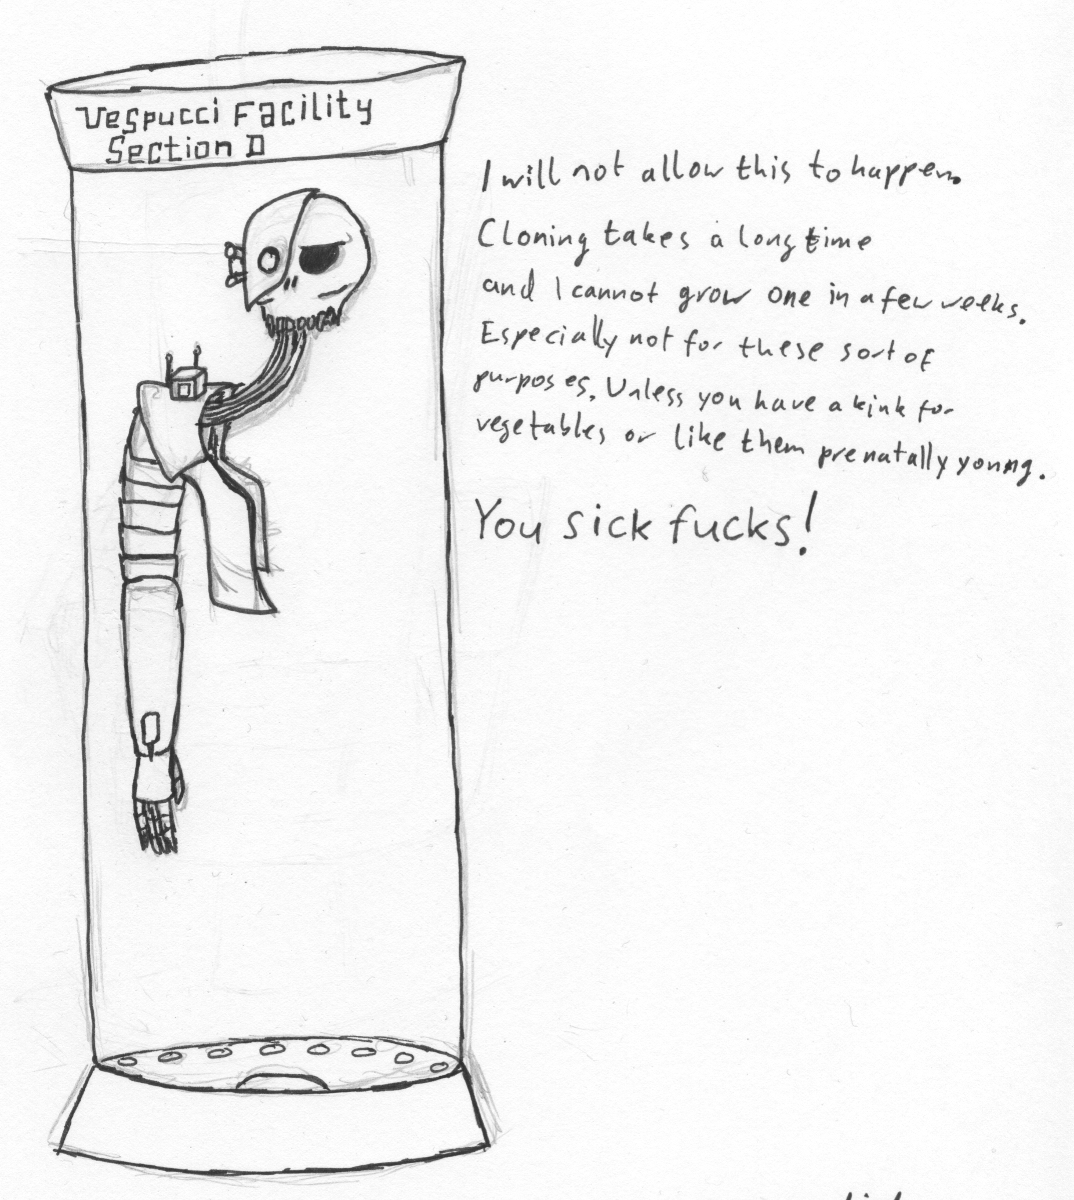 Vespucci Facility
Section D
I will not allow this to happen.
Cloning takes a long time
and I cannot grow one in a few weeks.
Especially not for these sort of
purposes. Unless you have a kink for
vegetables or like them prenatally young.
You sick fucks!